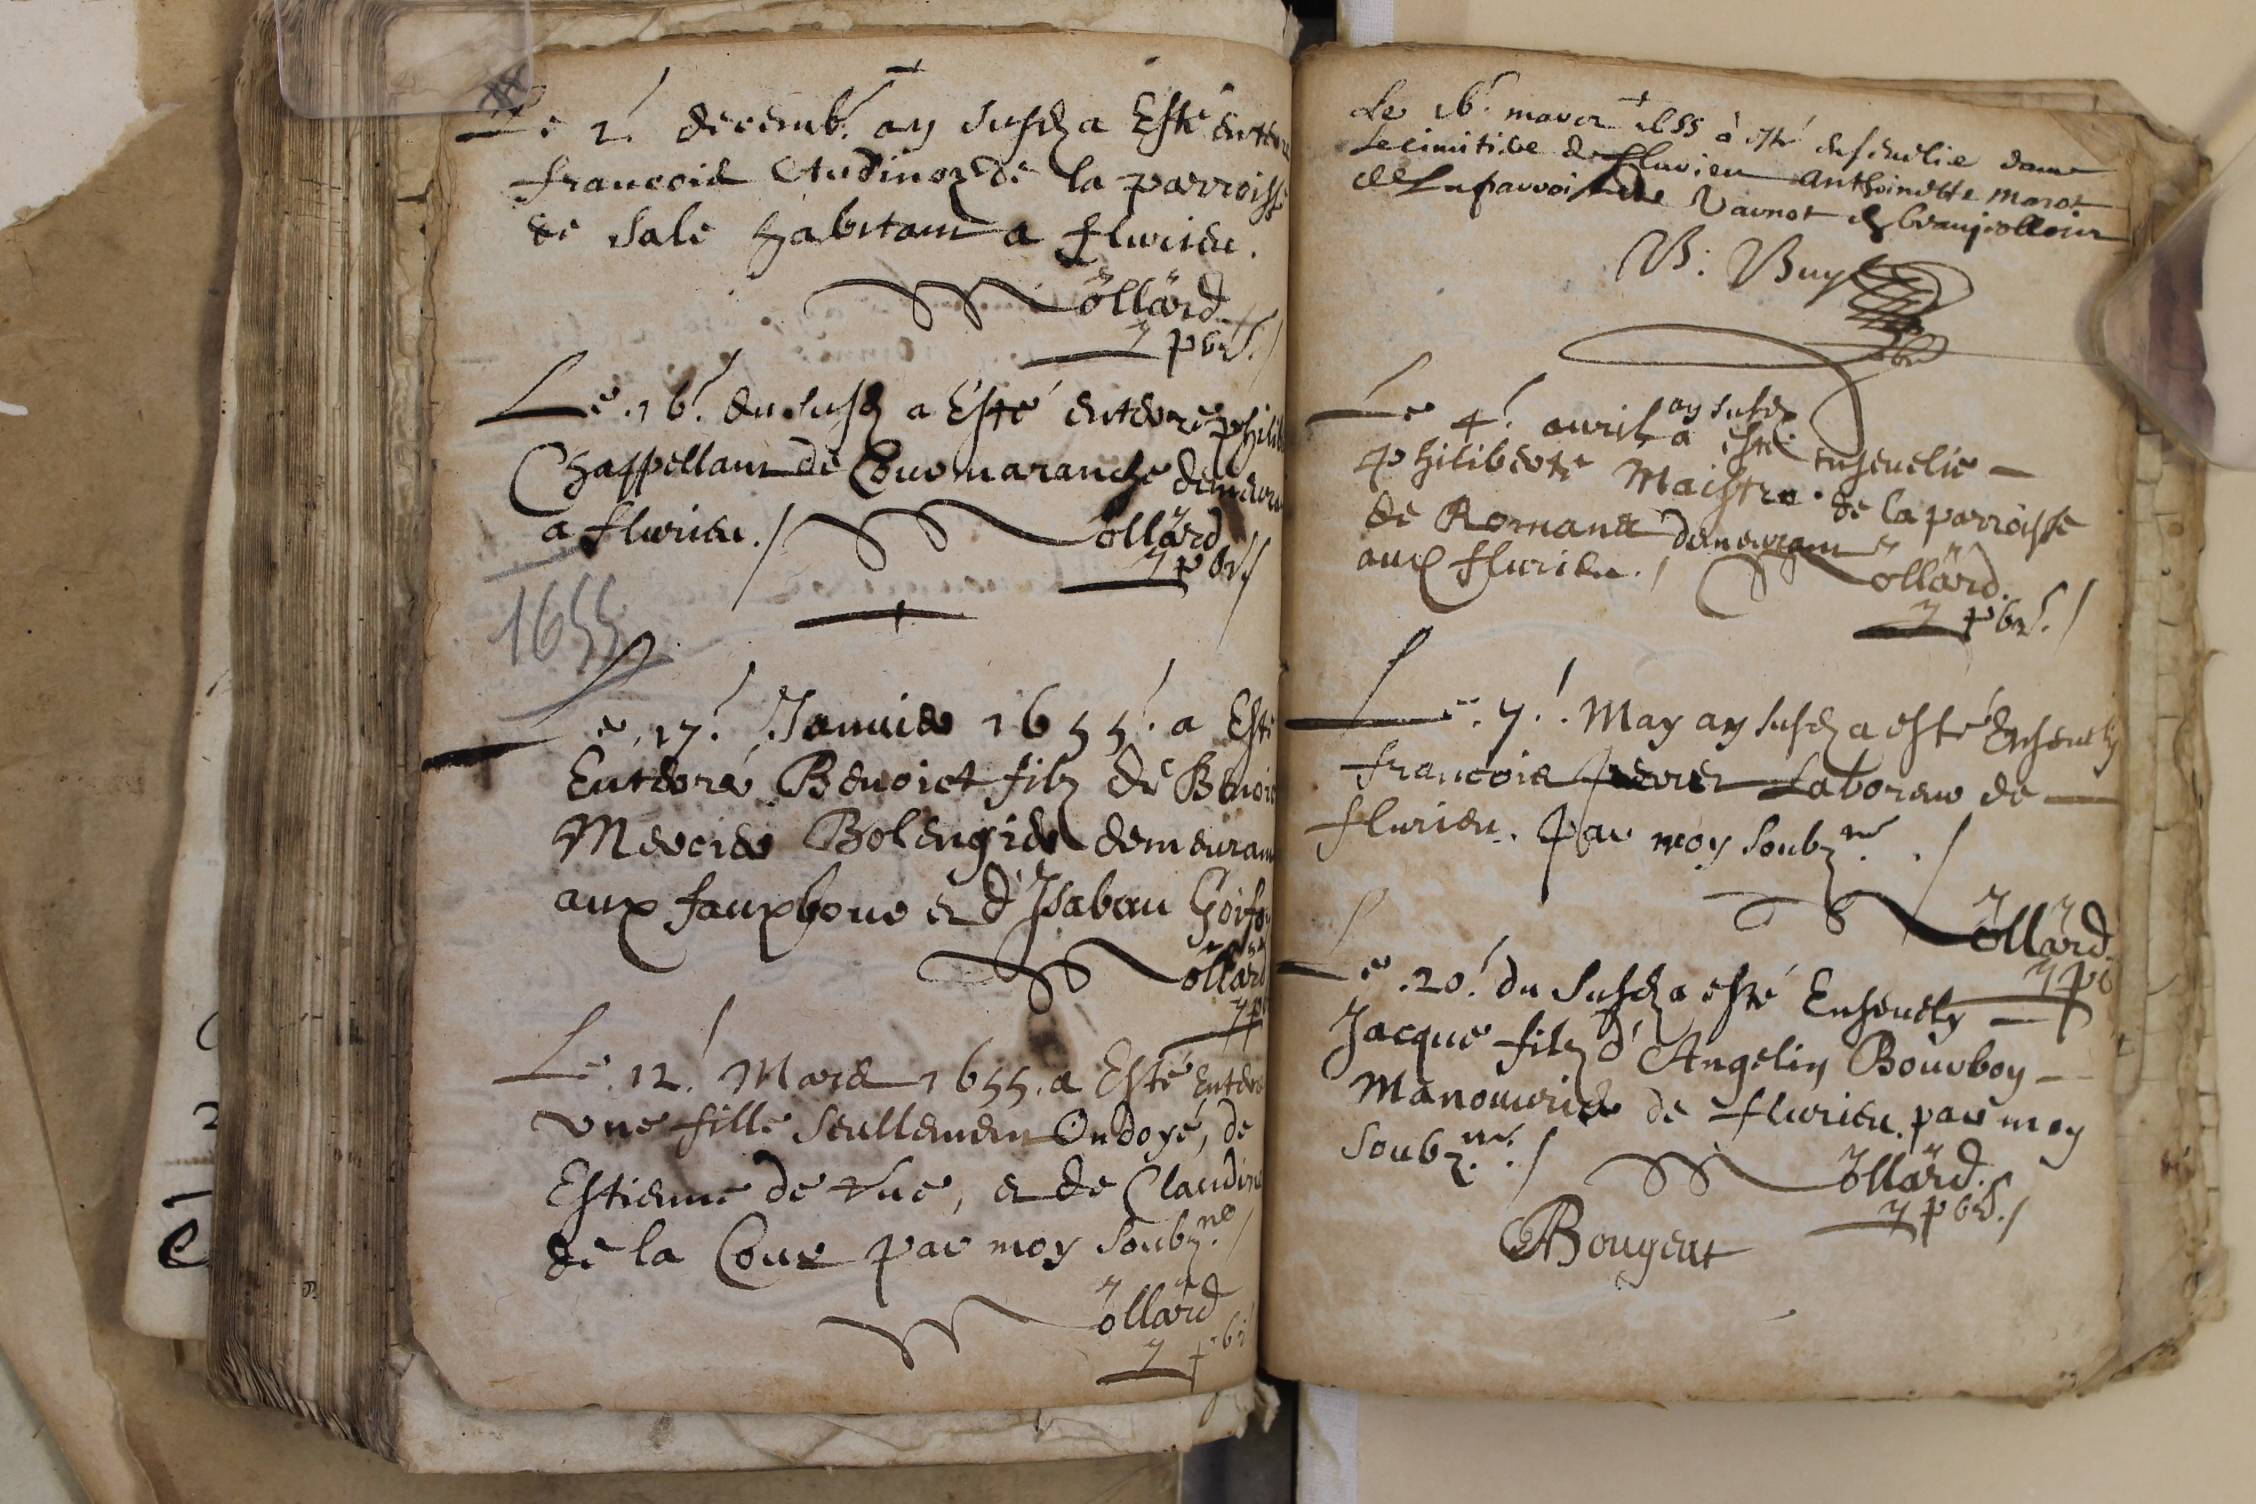 Le 2. decemb. an susd a Esté enterré
francois Audinot de la parroisse
de sale habitant a flurieu.
ollard
pbr.
Le .16. du susd a Esté enterré phili
Chappellam de Courmaranche demeura
a flurieu./ ollard
pbr
1655
Le .17. Januier 1655. a Esté
Enterré Benoict filz de Benoict
Mercier Bolengier demeurant
aux fauxbour et d'Isabeau Goifo
ollard
Le .12. Mars 1655. a Esté Enter
vne fille seullement Ondoyé, de
Estienne de rue, et de Claudine
de la Cour par moy soubz.né/
ollard
pbr
Le 16. mars 1655 à esté enseuelie dans
le cimitire de flurieu anthoinette
de la parroisse de en beaujollois
B: Buy
Le 4. auril a esté enseuelie
an susd
philiberte Maistre de la parroisse
de Romans demeurant
aud flurieu./ ollard.
pbr./
Le .7. May an susd a esté Enseuely
francois perrier Laboreur de
flurieu. Par moy soubz.né ./
ollard
Le .20. du susd a esté Enseuely
Jacque filz d'Angelin Bourbon
Manouurier de flurieu. par moy
soubz.né./
ollard.
pbr./
Bougeat